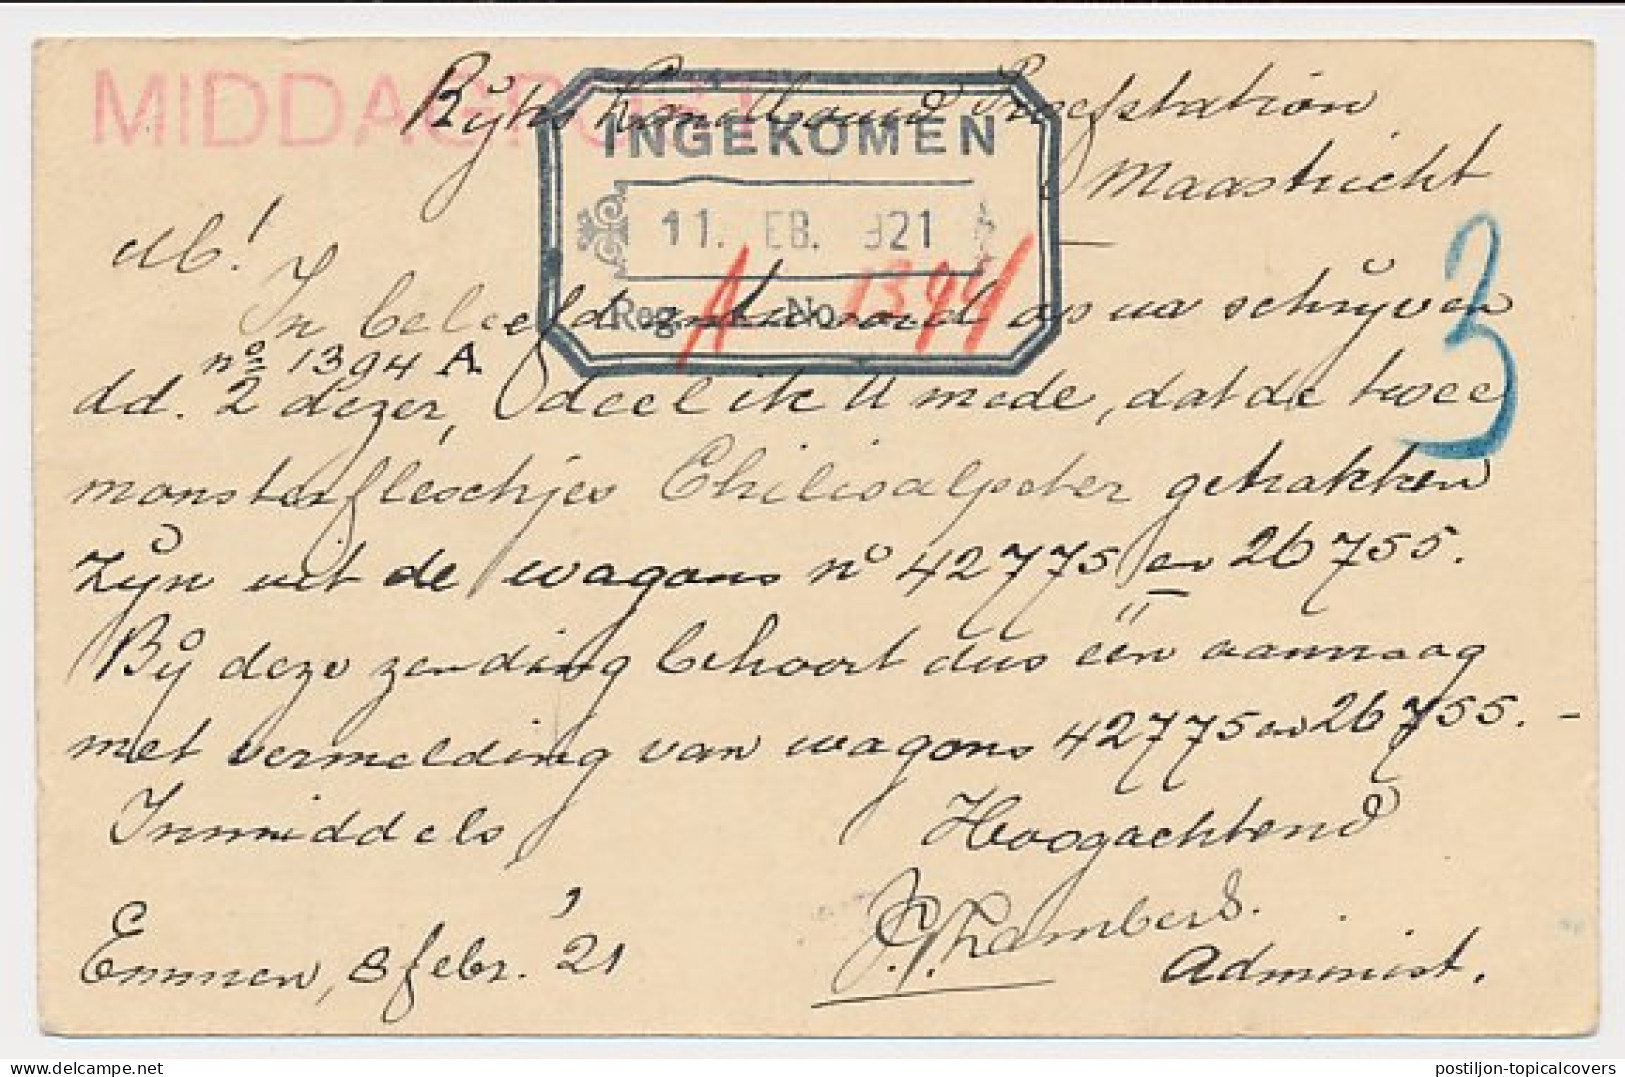 MIDDAGPOST
Rijks Landbouw Proefstation
Maastricht
INGEKOMEN
11. EB. 921
Reg. A No. 1394
3
M!
In beleefd antwoord op uw schrijven
no 1394 A
dd. 2 dezer, deel ik U mede, dat de twee
monsterfleschjes Chilisalpeter getrokken
zijn uit de wagons no 42775 en 26755.
Bij deze zending behoort dus één aanvraag
met vermelding van wagons 42775 en 26755. –
Inmiddels,
Hoogachtend
Emmen, 8 febr. '21
Lambers.
Administ.
delcampe.net
postiljon-topicalcovers